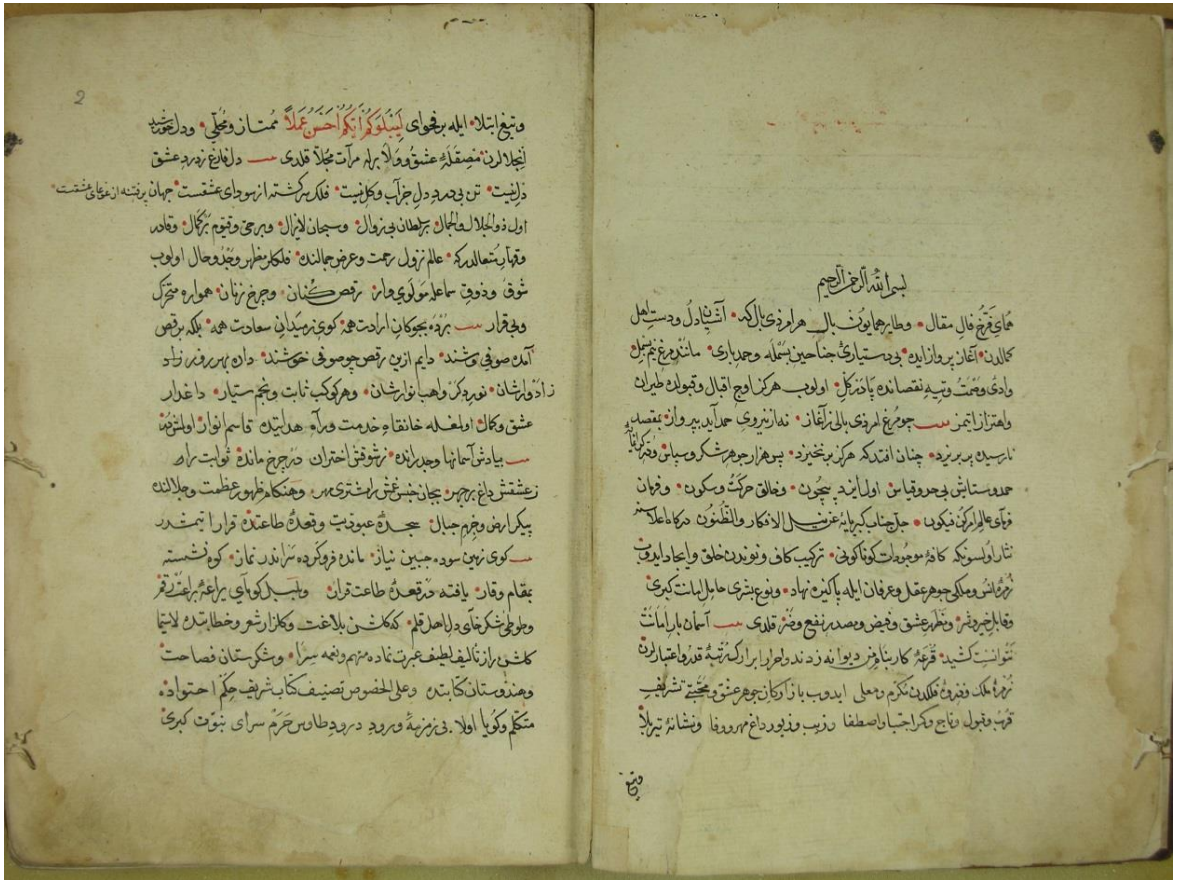 بسم الله الرحمن الرحيم
همای فرّخ فال مقال • وطایر همایون بال هر امر ذی بال که • آشیان دل ودست اهل
کمالدن • آغاز پرواز ایده • بی دستیاری جناحین بسمله وحمد باری • مانند مرغ نیم بسمل
وادی وتیه نقصانده اولوب هرکز اوج اقبال وقبولده طیران
واهتزاز ایتمز چو مرغ امر ذی بالی ز آغاز • نه از نیروی حمد آید بپرواز • بمقصد
نارسیده پر بریزد • چنان افتد که هرکز برنخیزد • پس هزار جوهر شکر وسپاس
حمد وستایش بی حد وقیاس اول ایزد بیچون • وخالق حرکت وسکون • وفرمان
فرمای عالم امر کن فیکون • جل جناب کبریائه عن نیل الافکار والظنون درکاه اعلاسنه
نثار اولسونکه کافهٔ موجودات کوناکونی • ترکیب کاف ونوندن خلق وایجاد ایدوب
زمرهٔ انس وملکی جوهر عقل وعرفان ایله پاکیزه نهاد • ونوع بشری حامل امانت کبری
وقابل خیر وشر • ومظهر عشق وفیض ومصدر نفع وضر قلدی آسمان بار امانت
نتوانست کشید • قرعهٔ کار بنام من دیوانه زدند واحراز ادراک رتبهٔ قدر واعتبارلرن
زمرهٔ ملک فلکدن مکرم ومعلی ایدوب بازار کان جوهر عشق ومحبتی تشریف
قرب وقبول وتاج اجتبا واصطفا زیب وزیور داغ مهر ووفا ونشانهٔ تیر بلا
وتیغ
2
وتیغ ابتلا • ایله بر فحوای لِيَبْلُوَكُمْ أَيُّكُمْ أَحْسَنُ عَمَلًا ممتاز ومحلی • ودل
انجلالرن مصقلهٔ عشق وولا برله مرآت مجلا قلدی دل فارغ ز درد عشق
دل نیست • تن بی درد دل جز آب وکل نیست • فلک سرکشته از سودای عشقست • جهان پر فتنه از غوغای عشقست •
اول ذو الجلال والجمال • بر سلطان بی زوال • وسبحان لایزال • وبر حی وقیوم بر کمال • وقادر
وقهار متعالدر که • عالم نزول رحمت وعرض جمالنده • فلکلر مظهر وجد وحال اولوب
شوق وذوق سماعله مولوی وار • رقص کنان • وچرخ زنان • همواره متحرک
وبی قرار بزده بچوکان ارادت همه • کوی ز میدان سعادت همه • بلکه بر قص
آمده صوفی وشند • دایم ازین رقص چو صوفی خوشند • داده بهر روز زاد
زاد وارشان • نور ده کنز واهب انوارشان • وهر کوکب ثابت ونجم سیار • داغدار
عشق وکمال اولمغله خانقاه خدمت وراه هدایتده قاسم انوار اولمشدر
بیادش آسمانها وجد رانده • ز شوقش اختران در چرخ مانده • ثوابت راه
ز عشقش داغ بر چهر • بجان جنس غمش را مشتری مهر • وهنکام ظهور عظمت وجلالنده
پیکر ارض وجرم جبال سجدهٔ عبودیت وقعدهٔ طاعتده قرار ایتمشدر
کوی زمین سوده جبین نیاز • مانده فرو کرده سر اندر نماز • کوه نشسته
بمقام وقار • یافته در قعدهٔ طاعت قرار • وبلبل کویای یراعهٔ براعت رقم
وطوطی شکر خای دل اهل قلم • که کلشن بلاغت وکلزار شعر وخطابتده لاسیما
کلشن راز تألیف لطیف عبرت نماده مترنم ونغمه سرا • وشکرستان فصاحت
وهندوستان کتابتده وعلی الخصوص تصنیف کتاب شریف حکم احتواده
متکلم وکویا اولا • بی زمزمهٔ ورود درود طاوس حرم سرای نبوت کبری